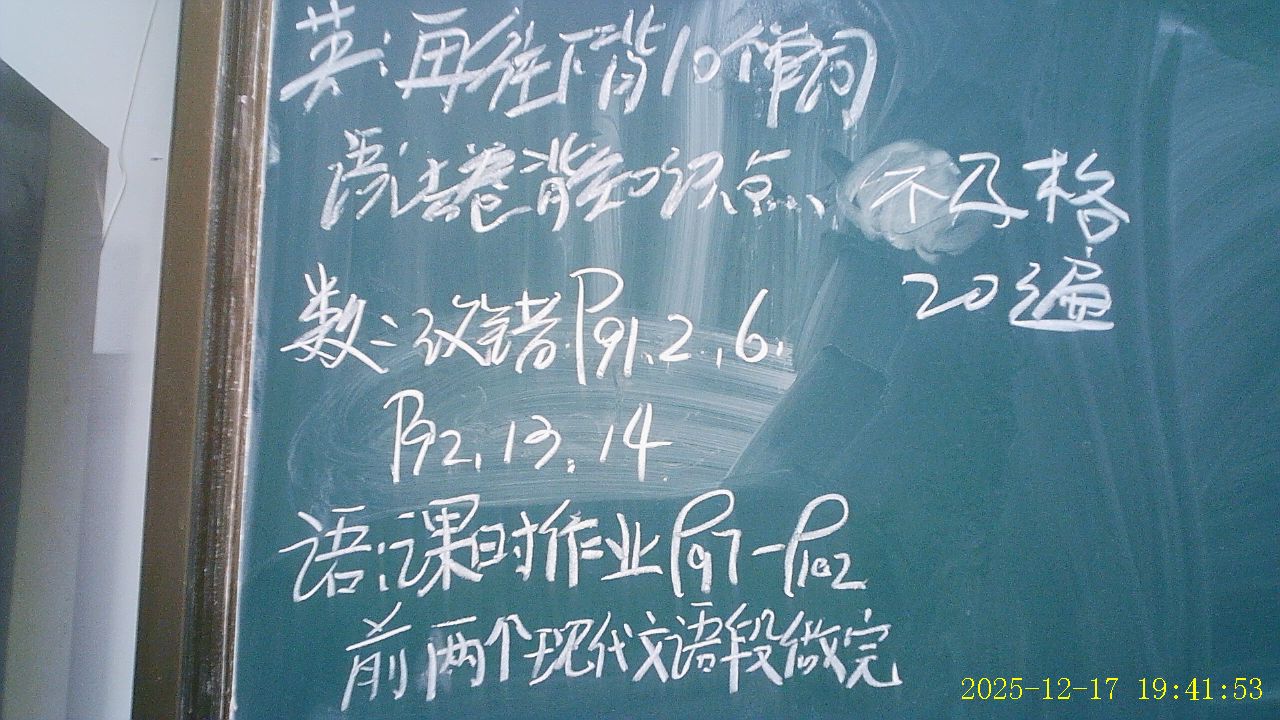 英:再往下背10个单词
语法卷背知识点、不及格
20遍
数:改错P91、2、6、
P92、13、14.
语:课时作业P97-P102
前两个现代文语段做完
2025-12-17 19:41:53